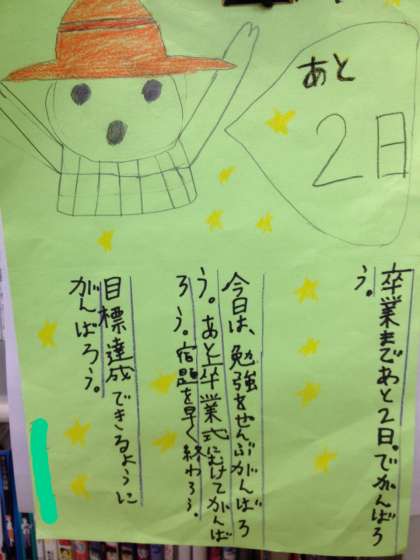 あと
2日
卒業まであと2日。でがんばろ
う。
今日は、勉強をぜんぶがんばろ
う。あと卒業式にむけてがんば
ろう。宿題を早く終わろう。
目標達成できるように
がんばろう。